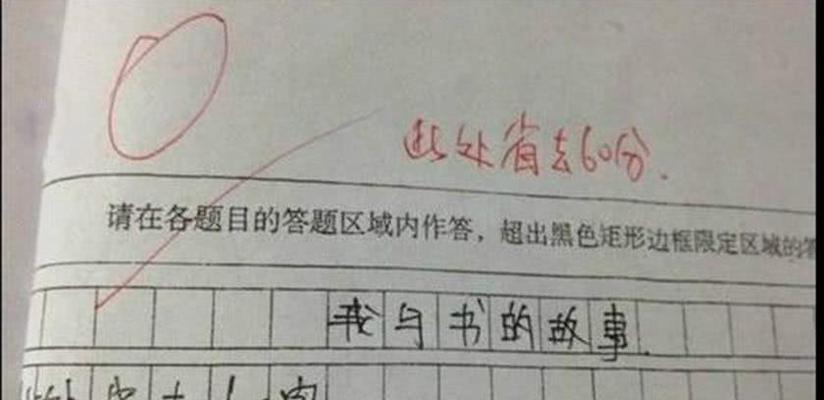 0
此处省去60分.
请在各题目的答题区域内作答，超出黑色矩形边框限定区域的答
我与书的故事.